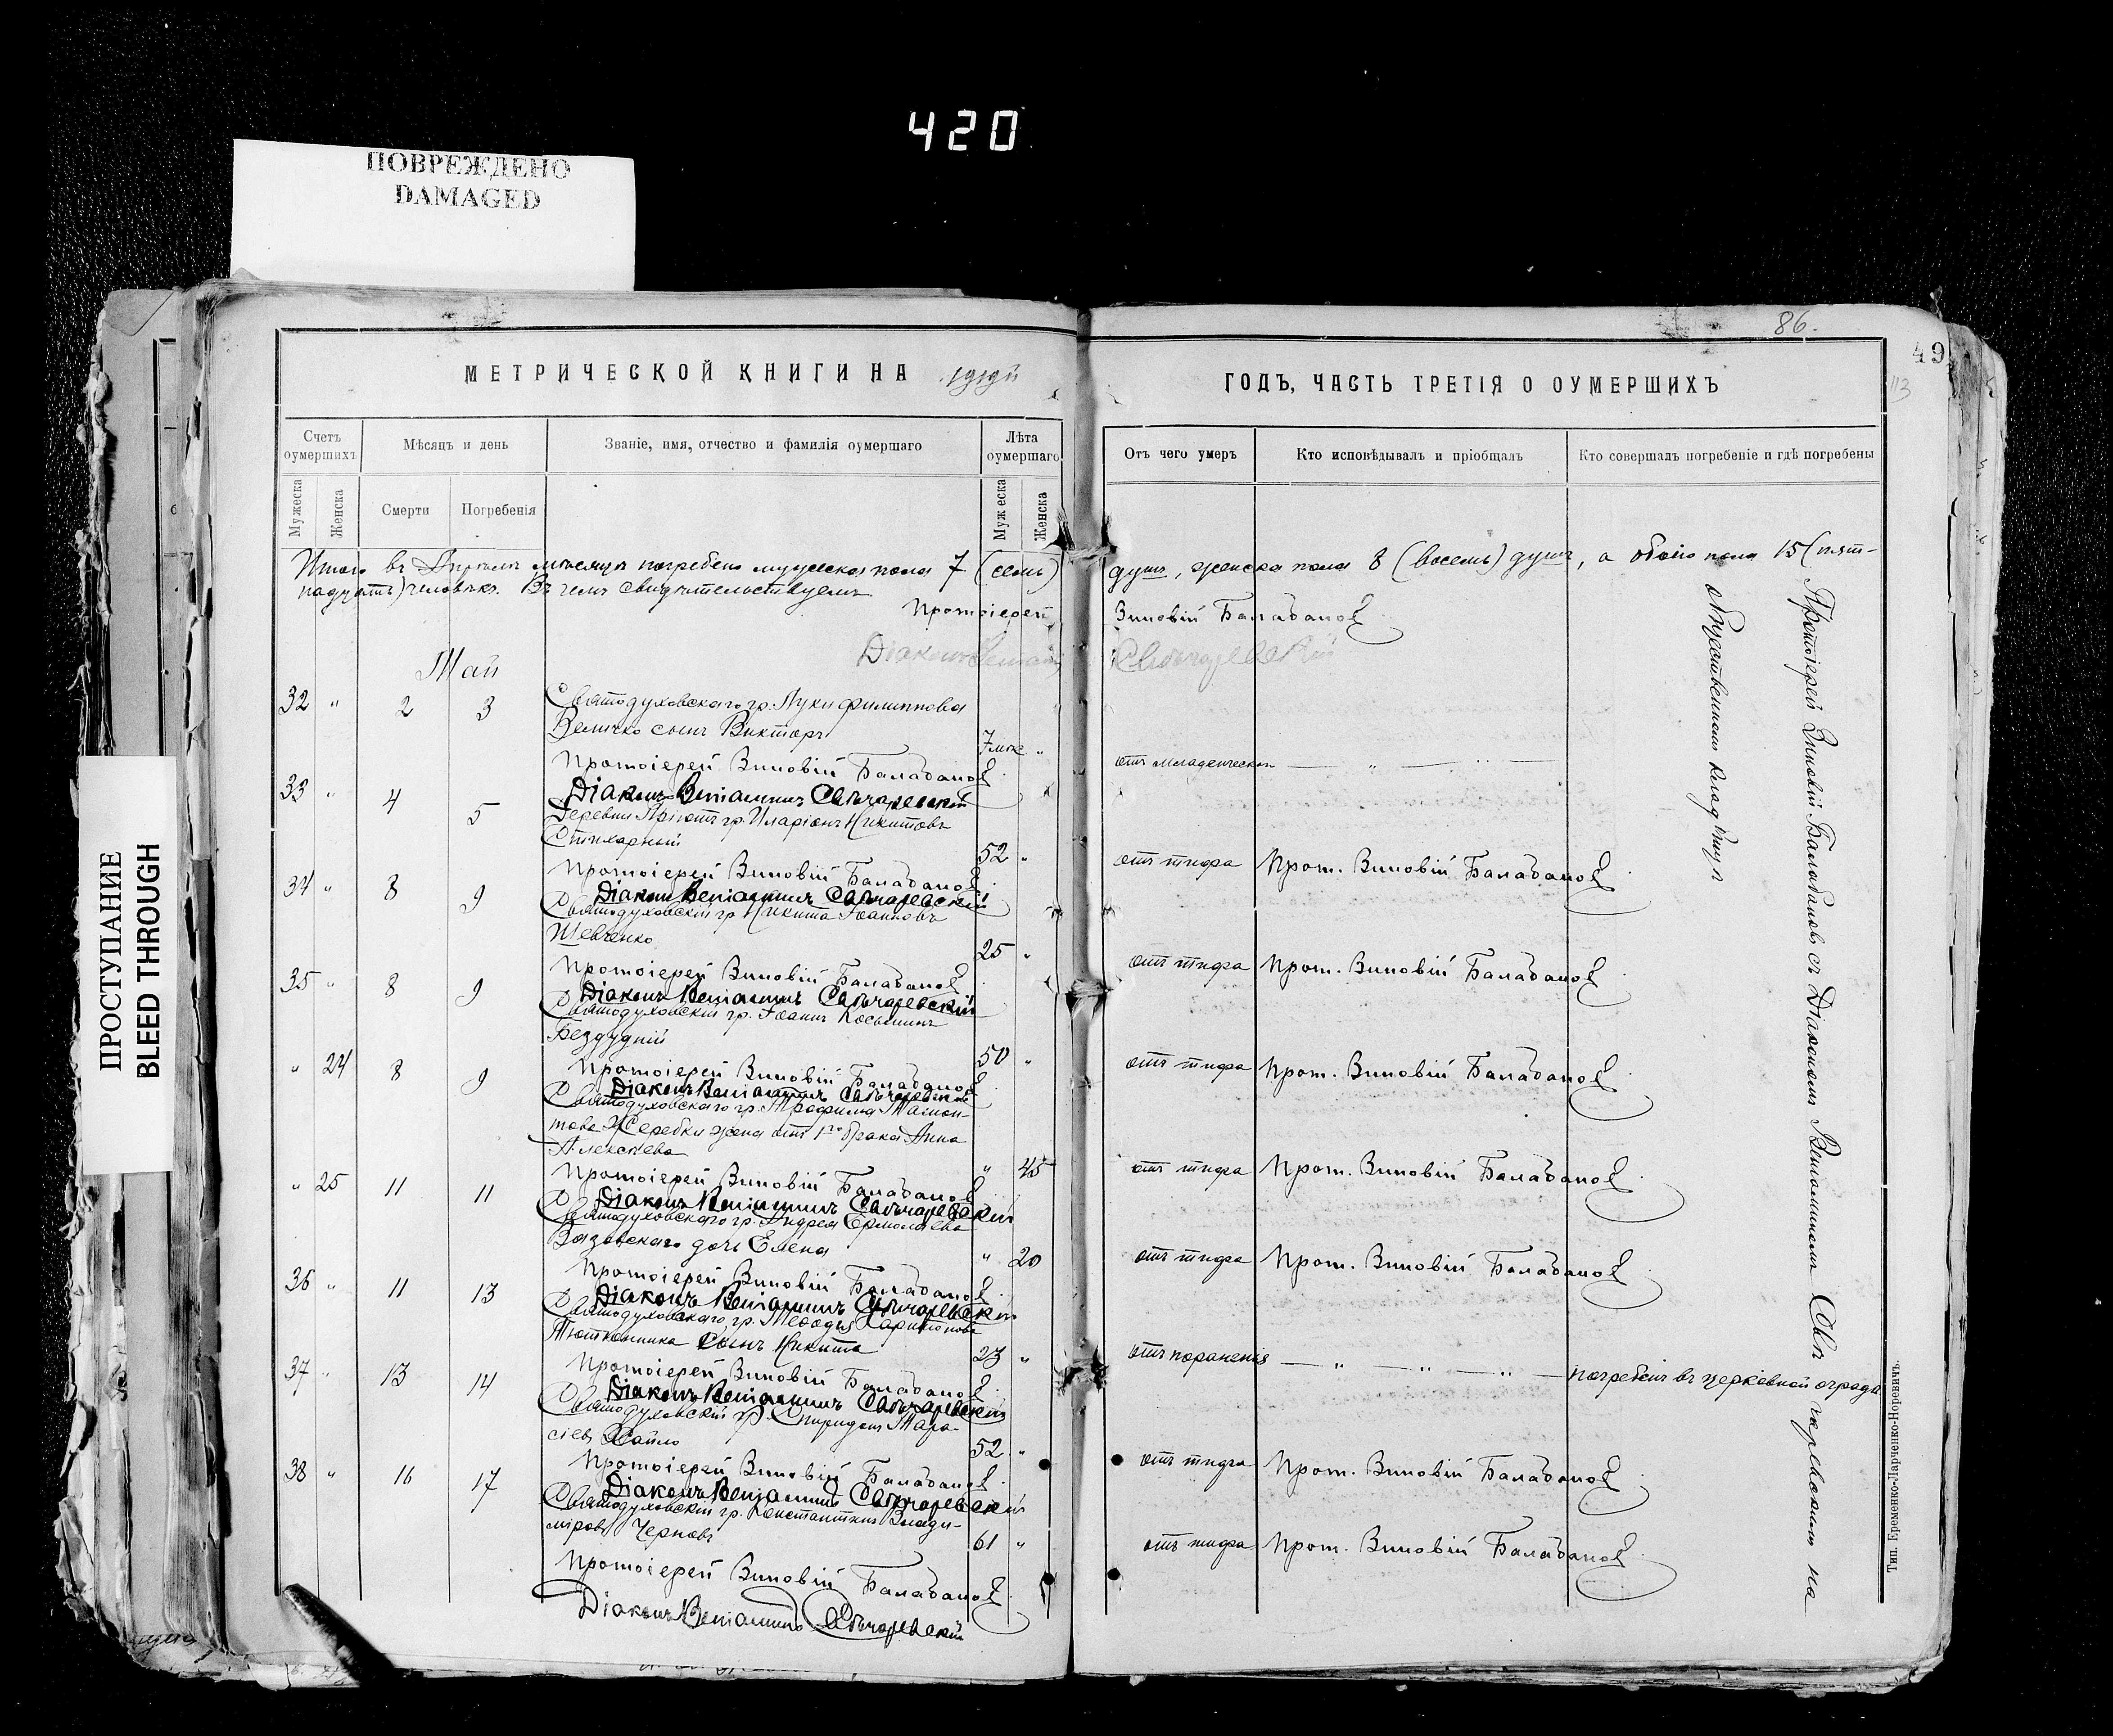 420
ПОВРЕЖДЕНО
DAMAGED
ПРОСТУПАНИЕ
BLEED THROUGH
86.
49
113
МЕТРИЧЕСКОЙ КНИГИ НА
ГОДЪ, ЧАСТЬ ТРЕТІЯ О ОУМЕРШИХЪ
Счетъ оумершихъ
Мѣсяцъ и день
Званіе, имя, отчество и фамилія оумершаго
Лѣта оумершаго
Отъ чего умеръ
Кто исповѣдывалъ и пріобщалъ
Кто совершалъ погребеніе и гдѣ погребены
Мужеска
Женска
Смерти
Погребенія
Мужеска
Женска
Итого въ Апрѣлѣ мѣсяцѣ погребено мужеска пола 7 (семь) душъ, женска пола 8 (восемь) душъ, а обоего пола 15 (пят-
надцать) человѣкъ. Въ чемъ свидѣтельствуемъ
Протоіерей Зиновій Балабановъ
Діаконъ
Май
32 " 2 3 Святодуховскаго гр. Луки Филиппова
Величко сынъ Викторъ 7 мѣс " отъ младенческой — " — " —
Протоіерей Зиновій Балабановъ
Діаконъ Веніаминъ
33 " 4 5 Деревни гр. Иларіонъ Никитовъ
Стихарный 52 " отъ тифа Прот. Зиновій Балабановъ
Протоіерей Зиновій Балабановъ
Діаконъ Веніаминъ
34 " 8 9 Святодуховскій гр. Никита Іоанновъ
Шевченко 25 " отъ тифа Прот. Зиновій Балабановъ
Протоіерей Зиновій Балабановъ
Діаконъ Веніаминъ
35 " 8 9 Святодуховскій гр. Іоаннъ Косьминъ
Бездудній 50 " отъ тифа Прот. Зиновій Балабановъ
Протоіерей Зиновій Балабановъ
Діаконъ Веніаминъ
" 24 8 9 Святодуховскаго гр. Трофима
Жеребки жена отъ 1го брака Анна
Алексѣева " 45 отъ тифа Прот. Зиновій Балабановъ
Протоіерей Зиновій Балабановъ
Діаконъ Веніаминъ
" 25 11 11 Святодуховскаго гр. Андрея Ермолаева
Вязовскаго дочь Елена " 20 отъ тифа Прот. Зиновій Балабановъ
Протоіерей Зиновій Балабановъ
Діаконъ Веніаминъ
36 " 11 13 Святодуховскаго гр. Меѳодія Харитонова
Тютюнника сынъ Никита 23 " отъ пораненія — " — " — " — погребенъ въ церковной оградѣ
Протоіерей Зиновій Балабановъ
Діаконъ Веніаминъ
37 " 13 14 Святодуховскій гр. Спиридонъ Тара-
сіевъ 52 " отъ тифа Прот. Зиновій Балабановъ
Протоіерей Зиновій Балабановъ
Діаконъ Веніаминъ
38 " 16 17 Святодуховскій гр. Константинъ Влади-
міровъ Черновъ 61 " отъ тифа Прот. Зиновій Балабановъ
Протоіерей Зиновій Балабановъ
Діаконъ Веніаминъ
Протоіерей Зиновій Балабановъ съ Діакономъ Веніаминомъ на
Общественномъ кладбищѣ
Тип. Еременко-Ларченко-Норевичъ.